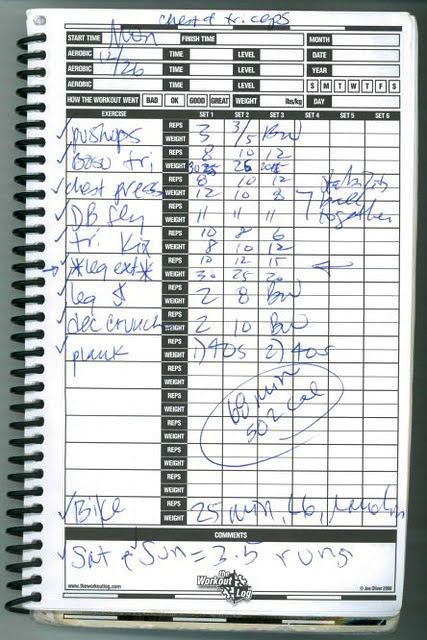 chest & triceps
START TIME Mon FINISH TIME MONTH
AEROBIC 12/26 TIME LEVEL DATE
AEROBIC TIME LEVEL YEAR
AEROBIC TIME LEVEL S M T W T F S
HOW THE WORKOUT WENT BAD OK GOOD GREAT WEIGHT lbs/kg DAY
EXERCISE SET 1 SET 2 SET 3 SET 4 SET 5 SET 6
✓ pushups REPS
WEIGHT 3 3/5 BW
✓ Bosu tri REPS 8 10 12
WEIGHT 30 25 20
✓ chest press REPS 8 10 12
WEIGHT 12 10 8 ball together
✓ DB fly REPS
WEIGHT " " "
✓ tri kix REPS 10 8 6
WEIGHT 8 10 12
→ *leg ext* REPS 10 12 15
WEIGHT 30 25 20 ←
✓ leg $ REPS
WEIGHT 2 8 BW
✓ dec crunch REPS
WEIGHT 2 10 BW
✓ plank REPS
WEIGHT 1) 40s 2) 40s
REPS
WEIGHT 60 min
REPS
WEIGHT 502 cal
REPS
WEIGHT
REPS
WEIGHT
REPS
WEIGHT
✓ Bike REPS
WEIGHT 25 min, L6,
COMMENTS
✓ Sat & ✓ Sun = 3.5 runs
www.theworkoutlog.com the Workout Log © Jon Oliver 2006